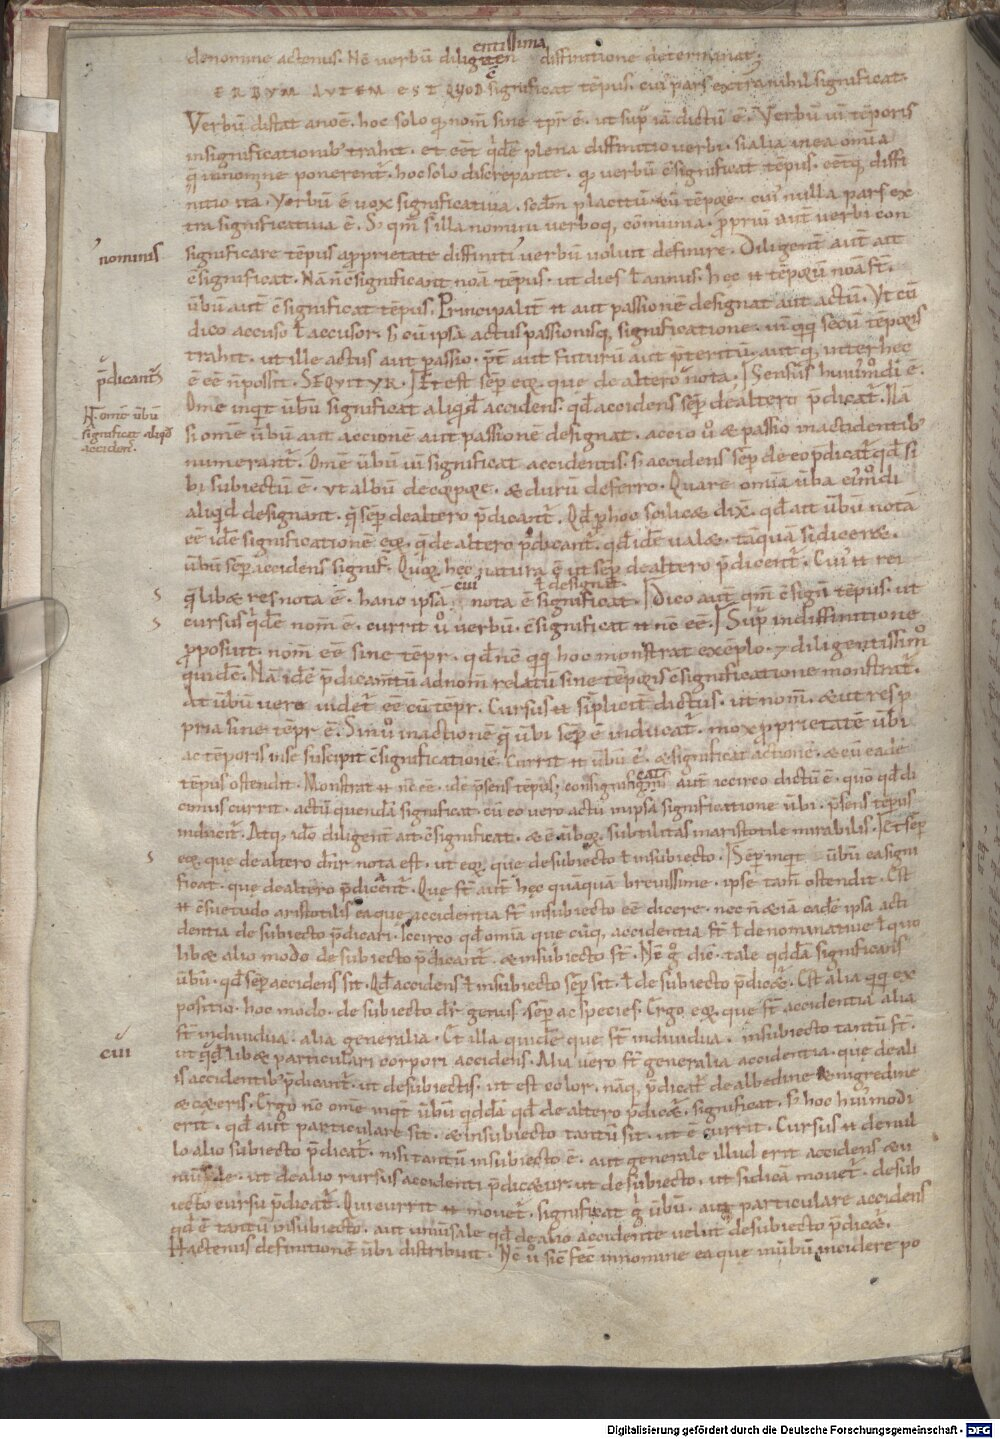 denomine actenus. Nc̄ verbū diligentissima diffinitione determinat.
ERBVM AVTEM EST QVOD c̄significat tēpus. cui' pars extra nihil significat.
Verbū distat a noē. hoc solo qm̄ nom̄ sine tp̄r ē. ut sup̄ iā dictū ē. Verbū vim tēporis
insignificationib' trahit. et eēt q̄dē plena diffinitio verbi. si alia in ea om̄ia
q̄ in nomine ponerent̄. hoc solo discrepante. qm̄ verbū c̄significat tēpus. eētq̄ diffi
nitio ita. Verbū ē uox significativa. sedm̄ placitū. cū tēpore. cui' nulla pars ex
tra significativa ē. S; qm̄ illa nomini verboq; cōmunia. p̄priū aut̄ verbi con
'nominis
significare tēpus a p̄prietate diffiniti' verbū voluit definire. Diligent̄ aut̄ ait
c̄significat. Nā ñ c̄significant noā tēpus. ut dies ł annus. hec n̄ tēporū noā sͭ.
ūbū aut̄ c̄significat tēpus. Principalit̄ n̄ aut passionē designat aut actū. Vt cū
dico accuso ł accusor. s; cū ipsa actus passionisq; significatione. vim q̄q; secū tēporis
trahit. ut ille actus aut passio. p̄t̄ aut futurū aut p̄teritū. aut q̄ inter hec
p̄dicant̄
ē eē ñ possit. SEQVITVR. Et est sēp eoꝝ. que de altero nota. Sensus hui'modi ē.
Om̄e inqͭ ūbū significat aliqd̄ accidens. qd̄ accidens sēp de altero p̄dicat̄. Nā
H̄ om̄e ūbū
significat aliqd̄
acciden.
si om̄e ūbū aut accionē aut passionē designat. accio ů & passio in accidentib'
numerant̄. Om̄e ūbū vim significat accidentis. s; accidens sēp de eo p̄dicat̄ qd̄ si
bi subiectū ē. vt albū de corpore. & durū de ferro. Quare om̄ia ūba ei'modi
aliqd̄ designant. q̄ sēp de altero p̄dicant̄. Qd̄ p̄ hoc scilicet dix̄. qd̄ ait ūbū nota
eē idē significationē eoꝝ. q̄ de altero p̄dicant̄. qd̄ idē ualet. tāquā si diceret.
ūbū sēp accidens signif. Quoꝝ hec natura ē ut sēp de altero p̄dicent̄. Cui' n̄ rei
cui ł designat.
q̄libet res nota ē. hanc ipsa nota c̄significat. Dico aut̄ qm̄ c̄sign̄ tēpus. ut
cursus q̄dē nom̄ ē. currit ů verbū. c̄significat n̄ nc̄ eē. Sup̄ in diffinitione
p̄posuit. nom̄ eē sine tēpr. qd̄ nc̄ q̄q; hoc monstrat exēplo. ⁊ diligentissimͦ
quidē. Nā idē p̄dicam̄tū ad nom̄ relatū sine tēporis c̄significatione monstrat̄.
At ūbū vero videt̄ eē cū tēpr. Cursus n̄ sīplicit̄ dictus. ut nom̄. & ut res p̄
pria sine tēpr ē. Sin ů in actionē q̄ ūbi sēp ē inducat̄. mox p̄prietatē ūbi
ac tēporis in se suscipit c̄significationē. Currit n̄ ūbū ē. & significat actionē. & eū eadē
tēpus ostendit. Monstrat n̄ nc̄ eē. idē p̄sens tēpus; consignificat aut̄ iccirco dictū ē. quo qd̄ di
cimus currit. actū quendā significat. cū eo vero actū in ipsa significatione ūbi. p̄sens tēpus
inducit̄. Atq; ideo diligent̄ ait c̄significat. & ē in ūboꝝ. subtilitas in aristotile mirabilis. Et sēp
eoꝝ que de altero dn̄r nota est. ut eoꝝ. que de subiecto ł in subiecto. Sēp inquit ūbū ea signi
ficat. que de altero p̄dicant̄. Que sͭ aut̄ hec quāquā brevissime. ipse tam̄ ostendit. Est
n̄ c̄suetudo aristotilis ea que accidentia sͭ in subiecto eē dicere. nec ñ & iā eadē ipsa acci
dentia de subiecto p̄dicari. Iccirco qd̄ om̄ia que cūq; accidentia sͭ ł denominative ł quo
libet alio modo de subiecto p̄dicant̄. & in subiecto sͭ. Nē g̊ diē. tale qddā significans
ūbū. qd̄ sēp accidens sit. Qd̄ accidens ł in subiecto sēp sit. ł de subiecto p̄dicet̄. Est alia q̄q; ex
positio. hoc modo. de subiecto dr̄ genus sēp ac species. Ergo eoꝝ. que sͭ accidentia alia
sͭ individua. alia generalia. Et illa quidē que sͭ individua. in subiecto tantū sͭ.
cui
ut q̄dlibet particulari corpori accidens. Alia vero sͭ generalia accidentia. que de ali
is accidentib' p̄dicant̄. ut de subiectis. ut est color. nāq; p̄dicat̄ de albedine & nigredine
& ceteris. Ergo nc̄ om̄e inqͭ ūbū qddā qd̄ de altero p̄dicet̄. significat. s; hoc hui'modi
erit. qd̄ aut particulare sit. & in subiecto tantū sit. ut ē currit. Cursus n̄ de nul
lo alio subiecto p̄dicat̄. nisi tantū in subiecto ē. aut generale illud erit accidens & u
niūsale. ut de alio rursus accidenti p̄dicetur. ut de subiecto. ut si dicā movet̄. de sub
iecto cursu p̄dicat̄. Qui currit n̄ movet̄. significat g̊ ūbū. aut particulare accidens
qd̄ ē tantū in subiecto. aut uniūsale qd̄ de alio accidente velut de subiecto p̄dicet̄.
Hactenus definitionē ūbi distribuit. Nc̄ ů sic fec̄ in nomine ea que in ūbū incidere po
Digitalisierung gefördert durch die Deutsche Forschungsgemeinschaft - DFG